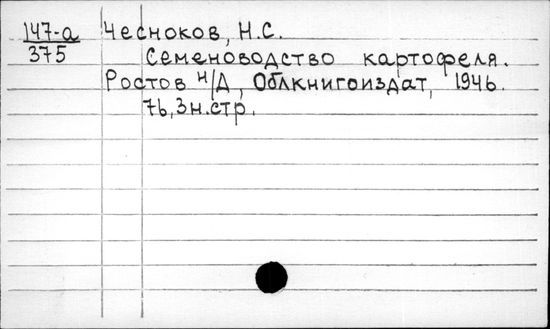 147-а Чесноков, Н.С.
375 Семеноводство картофеля.
Ростов н/Д, Облкнигоиздат, 1946.
76, 3н.стр.